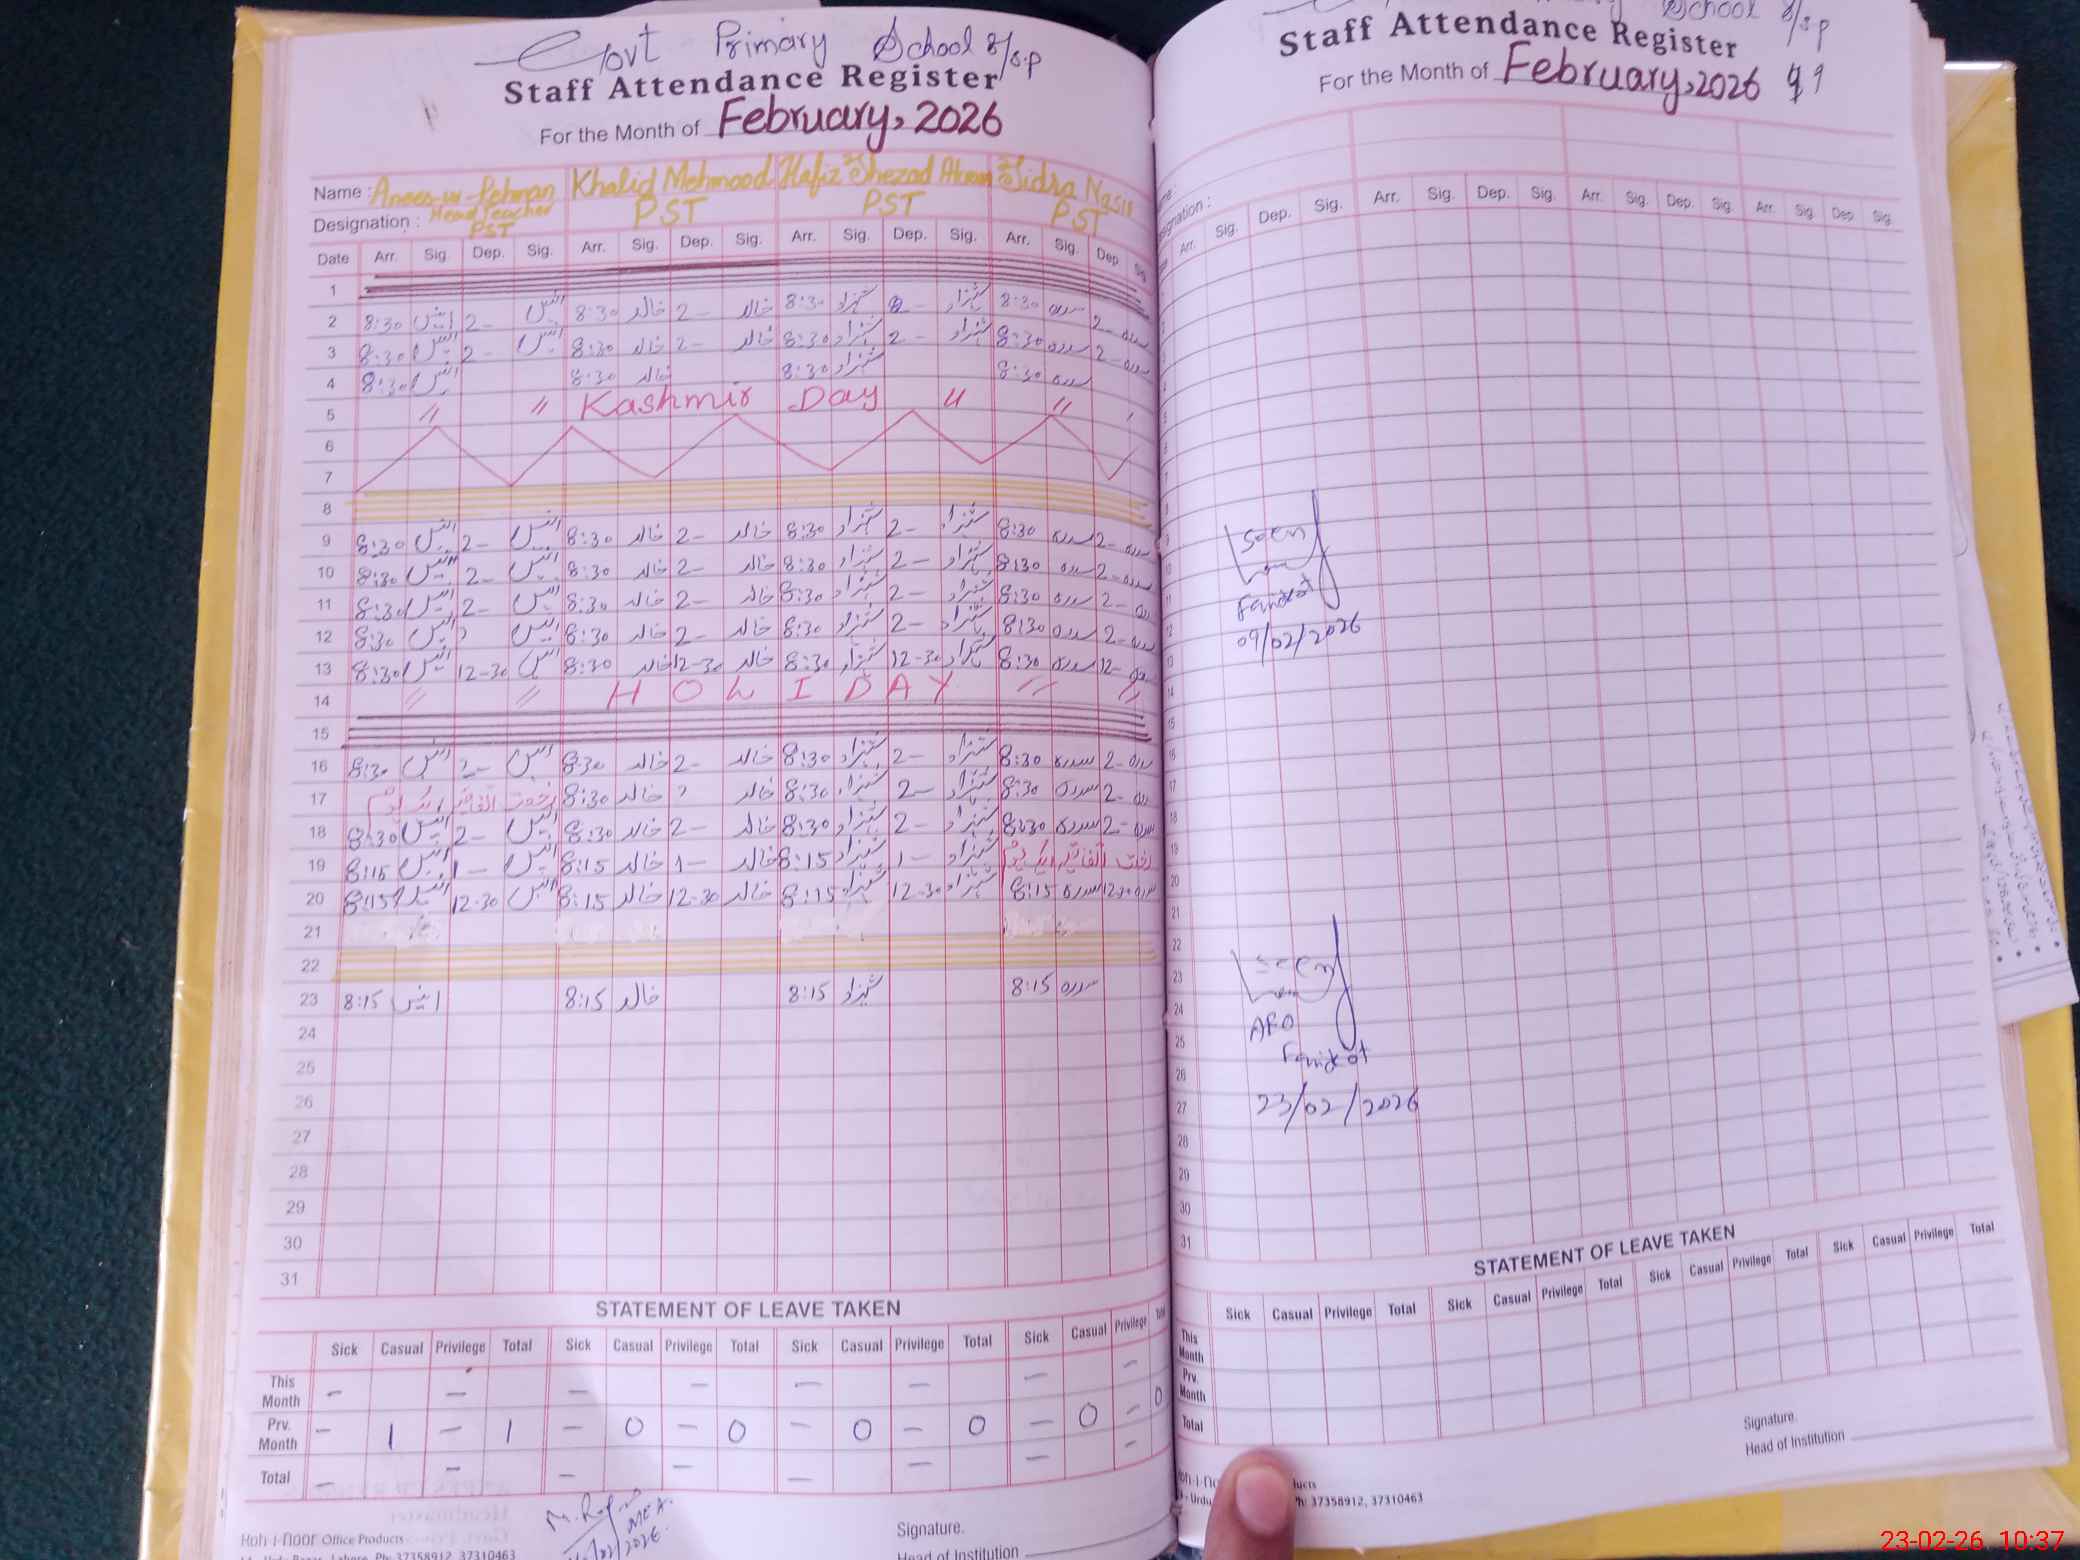 Govt Primary School 8/s.p
Staff Attendance Register
For the Month of February, 2026
Name : Anees-ur-Rehman Khalid Mehmood Hafiz Shezad Akram Sidra Nasir
Designation : Head Teacher PST PST PST PST
Date Arr. Sig. Dep. Sig. Arr. Sig. Dep. Sig. Arr. Sig. Dep. Sig. Arr. Sig. Dep Sig
1
2 8:30 انیس 2- انیس 8:30 خالد 2- خالد 8:30 شہزاد 2- شہزاد 8:30 سدرہ 2- سدرہ
3 8:30 انیس 2- انیس 8:30 خالد 2- خالد 8:30 شہزاد 2- شہزاد 8:30 سدرہ 2- سدرہ
4 8:30 انیس 8:30 خالد 8:30 شہزاد 8:30 سدرہ
5 〃 〃 Kashmir Day 〃 〃
6
7
8
9 8:30 انیس 2- انیس 8:30 خالد 2- خالد 8:30 شہزاد 2- شہزاد 8:30 سدرہ 2- سدرہ
10 8:30 انیس 2- انیس 8:30 خالد 2- خالد 8:30 شہزاد 2- شہزاد 8:30 سدرہ 2- سدرہ
11 8:30 انیس 2- انیس 8:30 خالد 2- خالد 8:30 شہزاد 2- شہزاد 8:30 سدرہ 2- سدرہ
12 8:30 انیس انیس 8:30 خالد 2- خالد 8:30 شہزاد 2- شہزاد 8:30 سدرہ 2- سدرہ
13 8:30 انیس 12-30 انیس 8:30 خالد 12-30 خالد 8:30 شہزاد 12-30 شہزاد 8:30 سدرہ 12- سدرہ
14 〃 〃 HOLIDAY 〃 〃
15
16 8:30 انیس 2- انیس 8:30 خالد 2- خالد 8:30 شہزاد 2- شہزاد 8:30 سدرہ 2- سدرہ
17 رخصت اتفاقیہ ایک یوم 8:30 خالد خالد 8:30 شہزاد 2- شہزاد 8:30 سدرہ 2- سدرہ
18 8:30 انیس 2- انیس 8:30 خالد 2- خالد 8:30 شہزاد 2- شہزاد 8:30 سدرہ 2- سدرہ
19 8:15 انیس 1- انیس 8:15 خالد 1- خالد 8:15 شہزاد 1- شہزاد رخصت اتفاقیہ ایک یوم
20 8:15 انیس 12-30 انیس 8:15 خالد 12-30 خالد 8:15 شہزاد 12-30 شہزاد 8:15 سدرہ 12-30 سدرہ
21
22
23 8:15 انیس 8:15 خالد 8:15 شہزاد 8:15 سدرہ
24
25
26
27
28
29
30
31
STATEMENT OF LEAVE TAKEN
Sick Casual Privilege Total Sick Casual Privilege Total Sick Casual Privilege Total Sick Casual Privilege Total
This Month – – – – – – – –
Prv. Month – 1 – 1 – 0 – 0 – 0 – 0 – 0 – 0
Total – – – – – – – –
MEA
Koh-i-Noor Office Products
Ph: 37358912, 37310463
Signature.
Head of Institution
School 8/s.p
Staff Attendance Register
For the Month of February, 2026
Arr. Sig. Dep. Sig. Arr. Sig. Dep. Sig. Arr. Sig. Dep. Sig. Arr. Sig. Dep Sig.
Seen
Faridkot
09/02/2026
Seen
AEO
Faridkot
23/02/2026
16
17
18
19
20
21
22
23
24
25
26
27
28
29
30
31
STATEMENT OF LEAVE TAKEN
Sick Casual Privilege Total Sick Casual Privilege Total Sick Casual Privilege Total Sick Casual Privilege Total
This Month
Prv. Month
Total
Signature.
Head of Institution
Ph: 37358912, 37310463
23-02-26 10:37